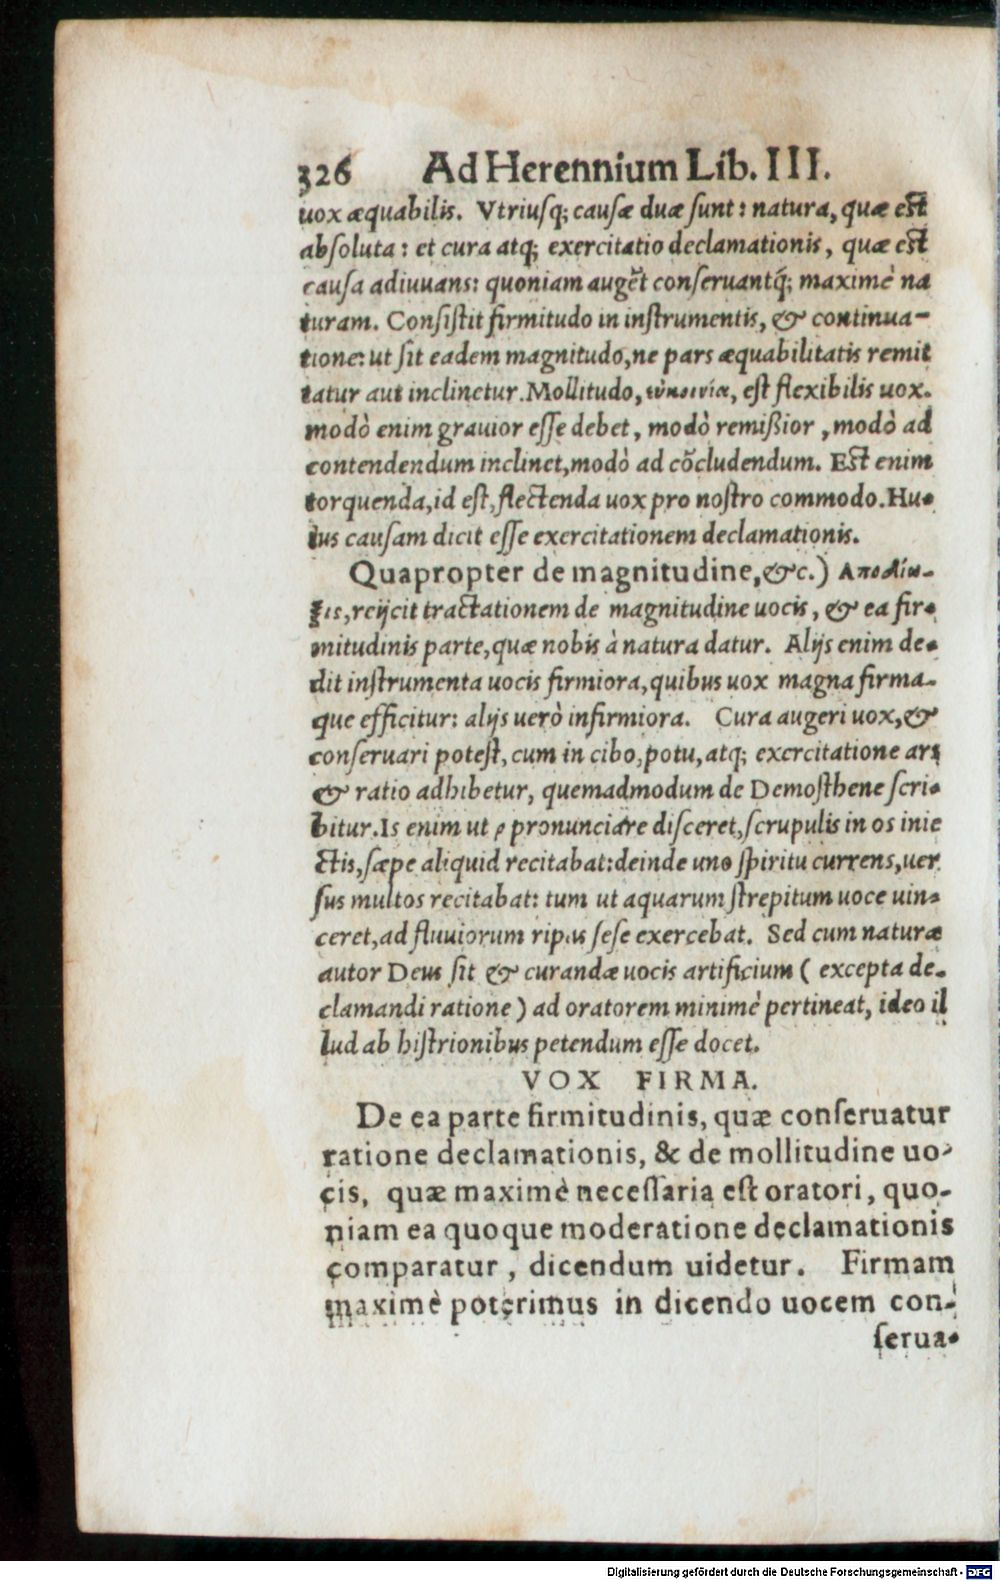 326 Ad Herennium Lib. III.
uox æquabilis. Vtriusq; causæ duæ sunt: natura, quæ est
absoluta: et cura atq; exercitatio declamationis, quæ est
causa adiuuans: quoniam augẽt conseruantq́; maximè na
turam. Consistit firmitudo in instrumentis, & continua-
tione: ut sit eadem magnitudo, ne pars æquabilitatis remit
tatur aut inclinetur. Mollitudo, est flexibilis uox.
modò enim grauior esse debet, modò remißior, modò ad
contendendum inclinet, modò ad cõcludendum. Est enim
torquenda, id est, flectenda uox pro nostro commodo. Hu-
ius causam dicit esse exercitationem declamationis.
Quapropter de magnitudine, &c.) Αποδίω-
ξις, reijcit tractationem de magnitudine uocis, & ea fir-
mitudinis parte, quæ nobis à natura datur. Alijs enim de-
dit instrumenta uocis firmiora, quibus uox magna firma-
que efficitur: alijs uerò infirmiora. Cura augeri uox, &
conseruari potest, cum in cibo, potu, atq; exercitatione ars
& ratio adhibetur, quemadmodum de Demosthene scri-
bitur. Is enim ut ρ pronunciare disceret, scrupulis in os inie
ctis, sæpe aliquid recitabat: deinde uno spiritu currens, uer
sus multos recitabat: tum ut aquarum strepitum uoce uin-
ceret, ad fluuiorum ripas sese exercebat. Sed cum naturæ
autor Deus sit & curandæ uocis artificium (excepta de-
clamandi ratione) ad oratorem minimè pertineat, ideo il
lud ab histrionibus petendum esse docet.
VOX FIRMA.
De ea parte firmitudinis, quæ conseruatur
ratione declamationis, & de mollitudine uo-
cis, quæ maximè necessaria est oratori, quo-
niam ea quoque moderatione declamationis
comparatur, dicendum uidetur. Firmam
maximè poterimus in dicendo uocem con-
serua-
Digitalisierung gefördert durch die Deutsche Forschungsgemeinschaft - DFG